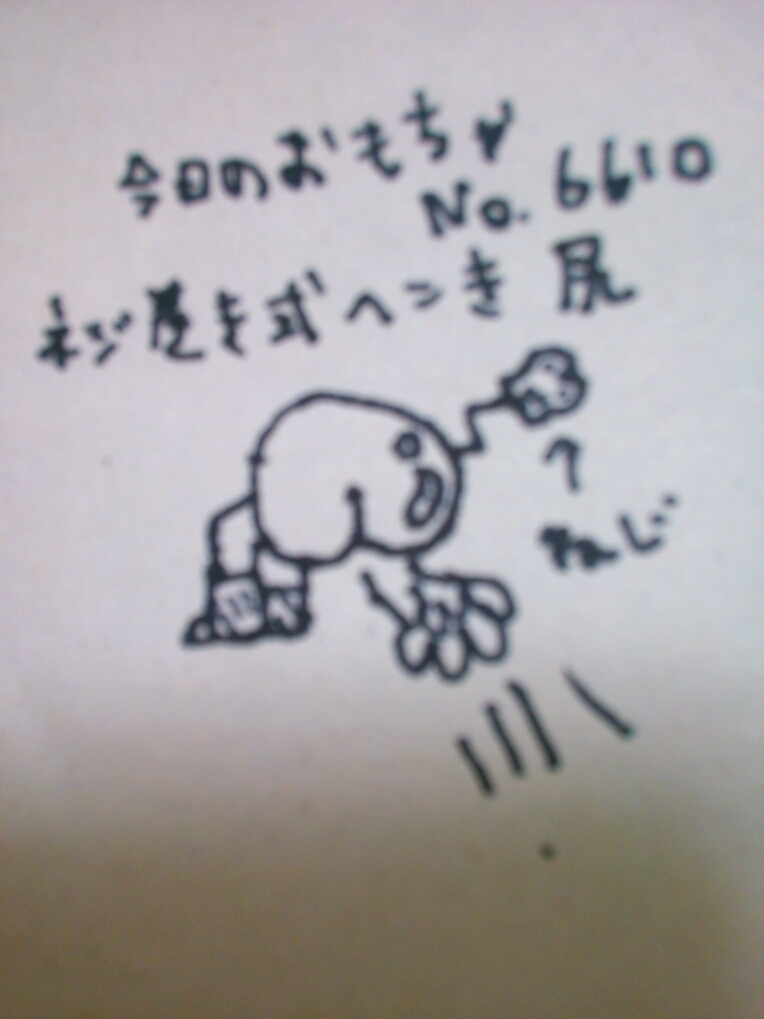 今日のおもちゃ
No. 6610
ネジ巻き式ヘンき尻
↑
ねじ